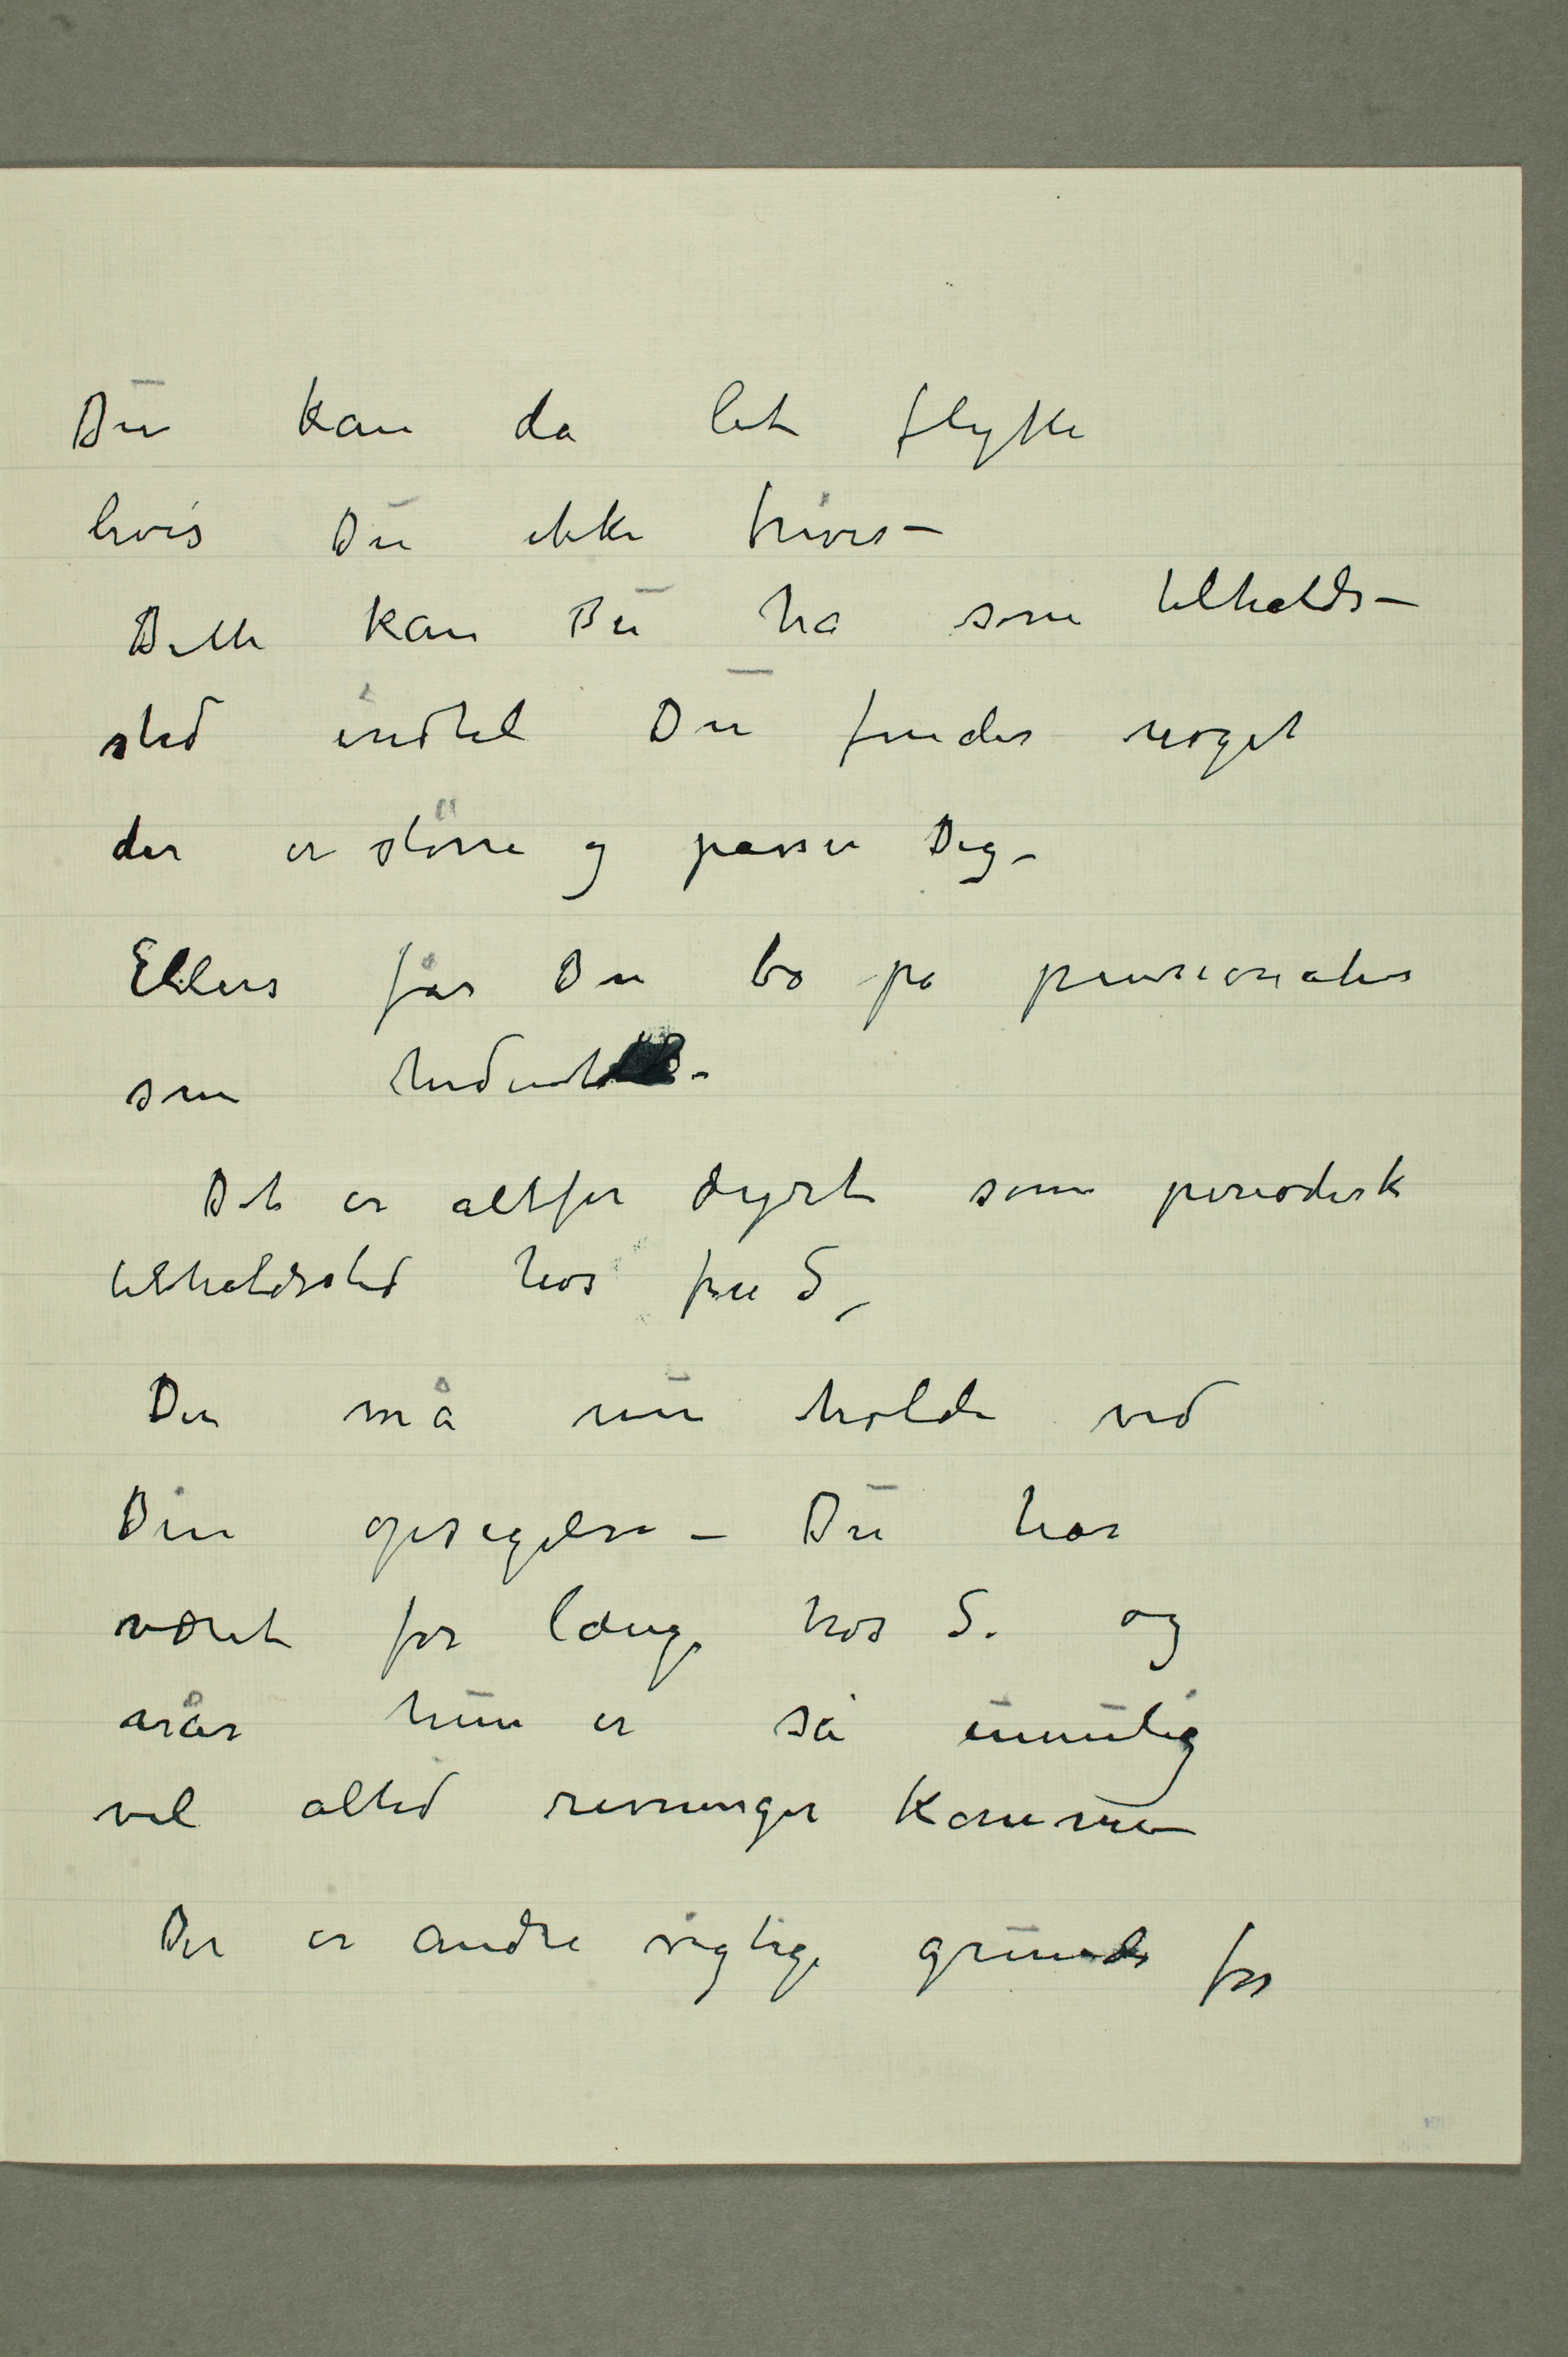 Du kan da let flytte
hvis Du ikke trives –
Dette kan Du ha som tilholds–
sted indtil Du finder noget
der er större og passer Dig –
Ellers får Du bo på pensionater
som hidentil –
Det er altfor dyrt som periodisk
tilholdssted hos fru S,
Du må nu holde ved
Din opsigelse – Du har
været for længe hos S. og
når hun er så umulig
vil altid rivninger komme –
Der er andre vigtige grunde for